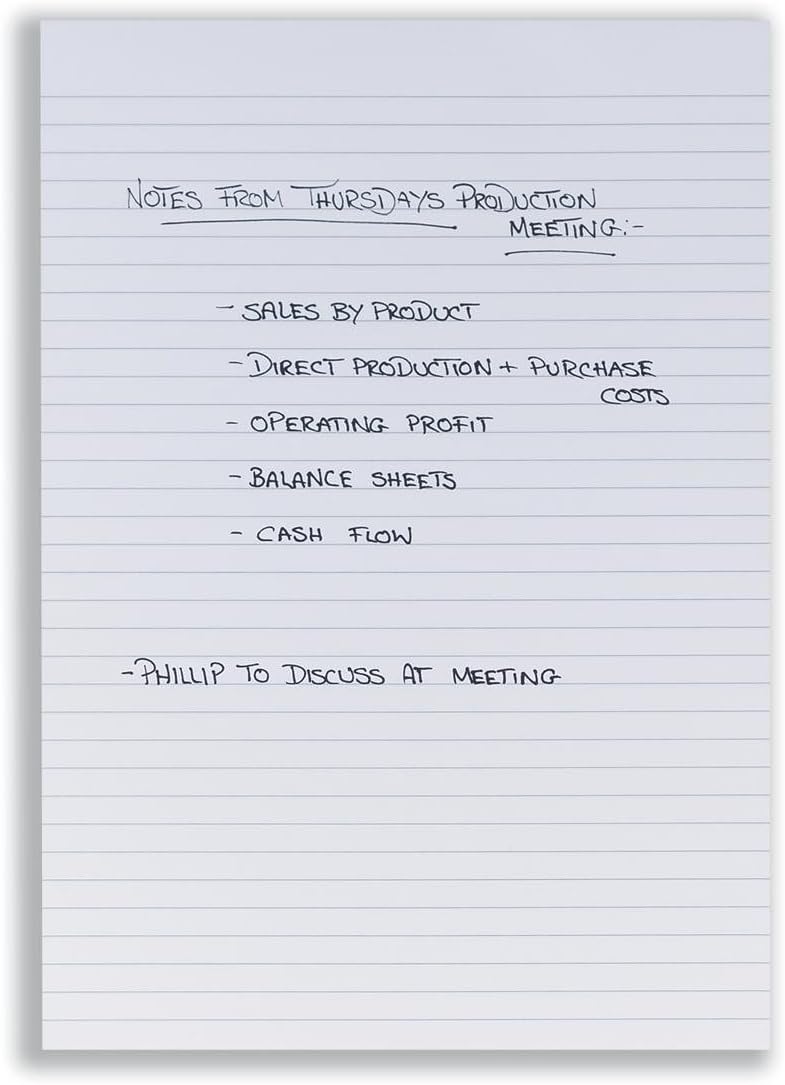 NOTES FROM THURSDAYS PRODUCTION
MEETING:-
- SALES BY PRODUCT
- DIRECT PRODUCTION + PURCHASE
COSTS
- OPERATING PROFIT
- BALANCE SHEETS
- CASH FLOW
- PHILLIP TO DISCUSS AT MEETING